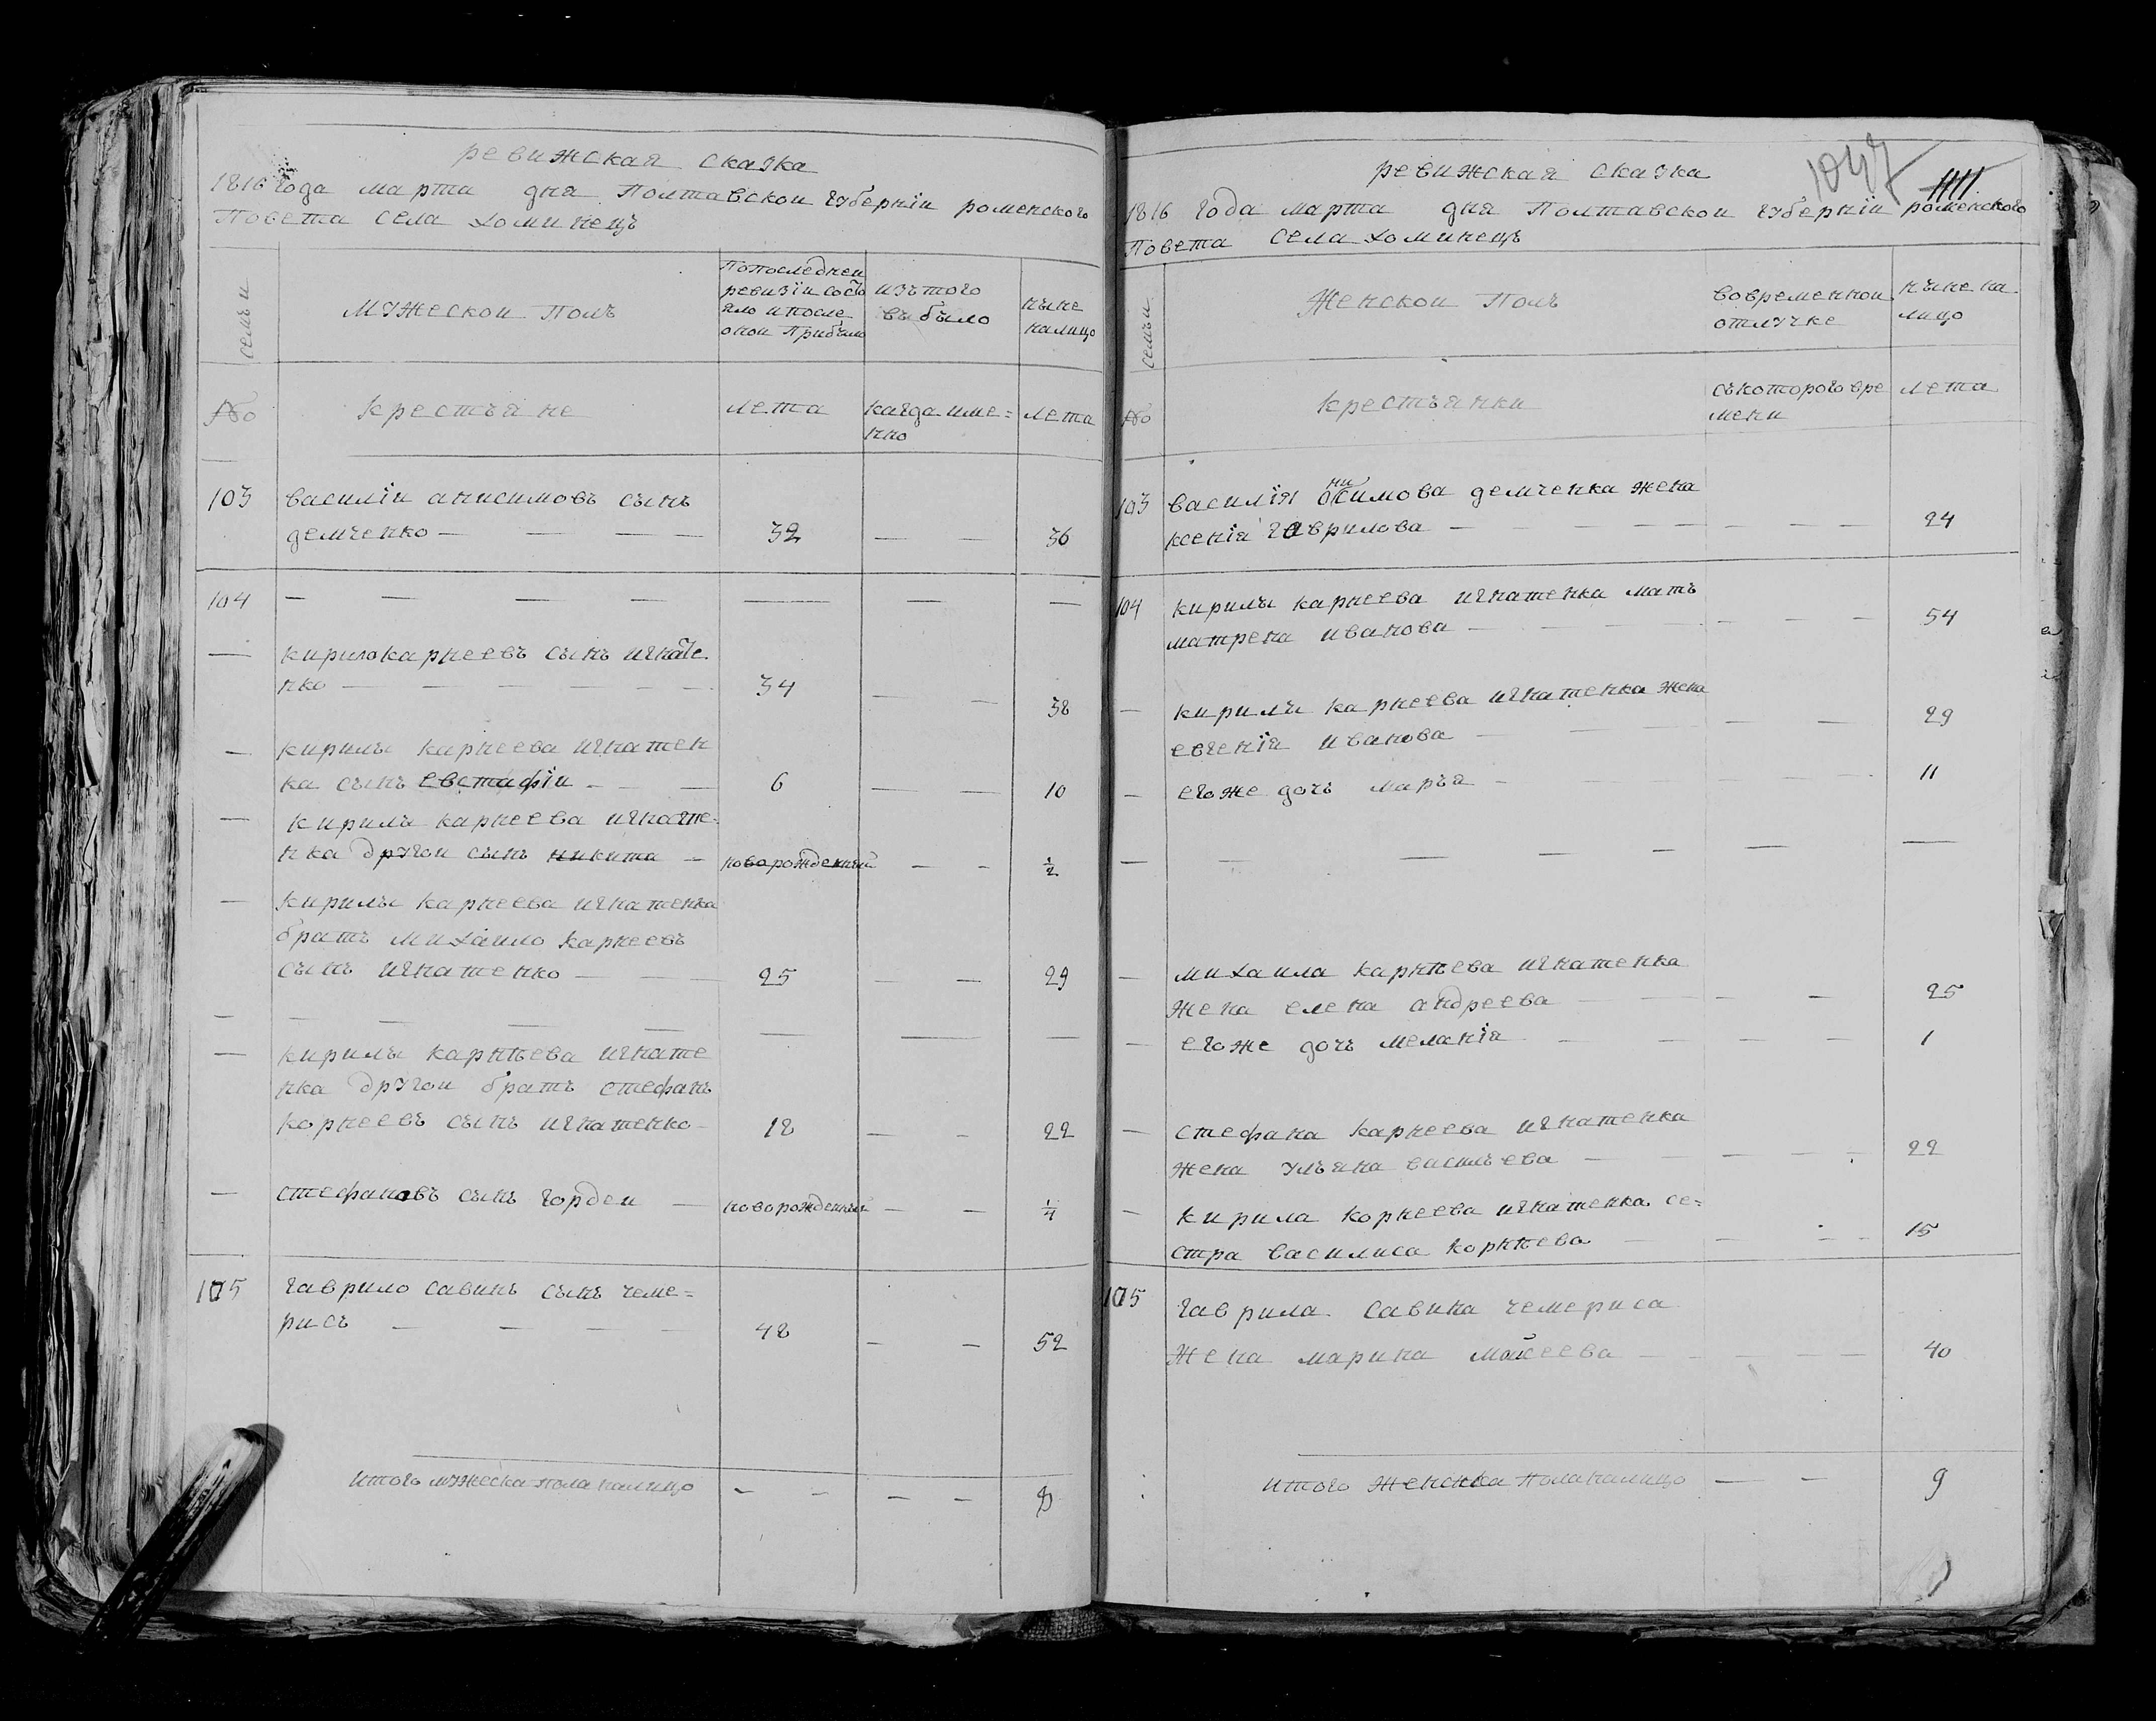 ревижская сказка
1816 года марта дня Полтавской губерніи роменского
Повета села хоминецъ
семьи
мужеской Полъ
Попоследней
ревизіи состо
яло ипосле
оной Прибыло
изътого
выбыло
ныне
налицо
№
крестьяне
лета
когда име=
нно
лета
103
василіи анисимовъ сынъ
демченко — — — —
32
— —
36
104
— — — — — — —
— кирилокарнеевъ сынъ игнате
нко — — — — — —
34
— —
38
— кирилы карнеева игнатен
ка сынъ евстафіи — — —
6
— —
10
— кирилы карнеева игнате=
нка другои сынъ никита —
новорожденный
— —
1/2
— кирилы карнеева игнатенка
братъ михаило карнеевъ
сынъ игнатенко — —
25
— —
29
— — — — — — — —
— кирилы карнѣева игнате
нка другои братъ стефанъ
корнеевъ сынъ игнатенко —
18
— —
22
— стефановъ сынъ гордеи —
новорожденный
— —
1/4
105
гаврило савинъ сынъ чеме=
рисъ — — — —
48
— —
52
итого мужеска пола налицо
— — — —
8
1047
1111
ревижская сказка
1816 года марта дня Полтавской губерніи роменского
Повета села хоминецъ
семьи
Женской Полъ
вовременной
отлучке
ныне на
лицо
№
крестьянки
съкоторого вре
мени
лета
103
ни
василія Осимова демченка жена
ксенія гаврилова — — — — — — —
24
104
кирилы карнеева игнатенка мать
матрена иванова — — — — — —
54
— кирилы карнеева игнатенка жена
евгенія иванова — — — —
29
— егоже дочь марья — — — — —
11
— — — — — — —
— михаила карнѣева игнатенка
жена елена андреева — — — —
25
— егоже дочь меланія — — — — —
1
— стефана карнеева игнатенка
жена ульяна васильева — — — —
22
— кирила корнеева игнатенка се=
стра василиса корнѣева — — — —
15
105
гаврила савина чемериса
жена марина моисеева — — — — —
40
итого женска полналицо — —
9